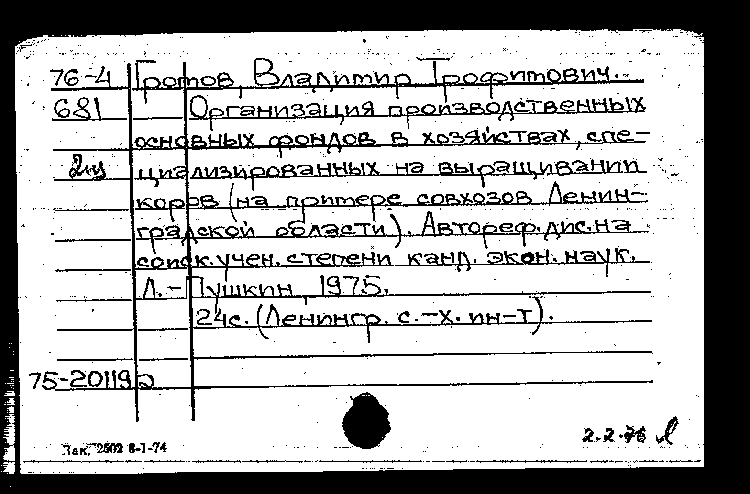 76-4 Громов, Владимир Трофимович.
681 Организация производственных
основных фондов в хозяйствах, спе-
2 циализированных на выращивании
коров (на примере совхозов Ленин-
градской области). Автореф. дис. на
соиск. учен. степени канд. экон. наук.
Л.-Пушкин, 1975.
24с. (Ленингр. с.-х. ин-т).
75-20119а
2.2.76
Зак. 2502 8-1-74